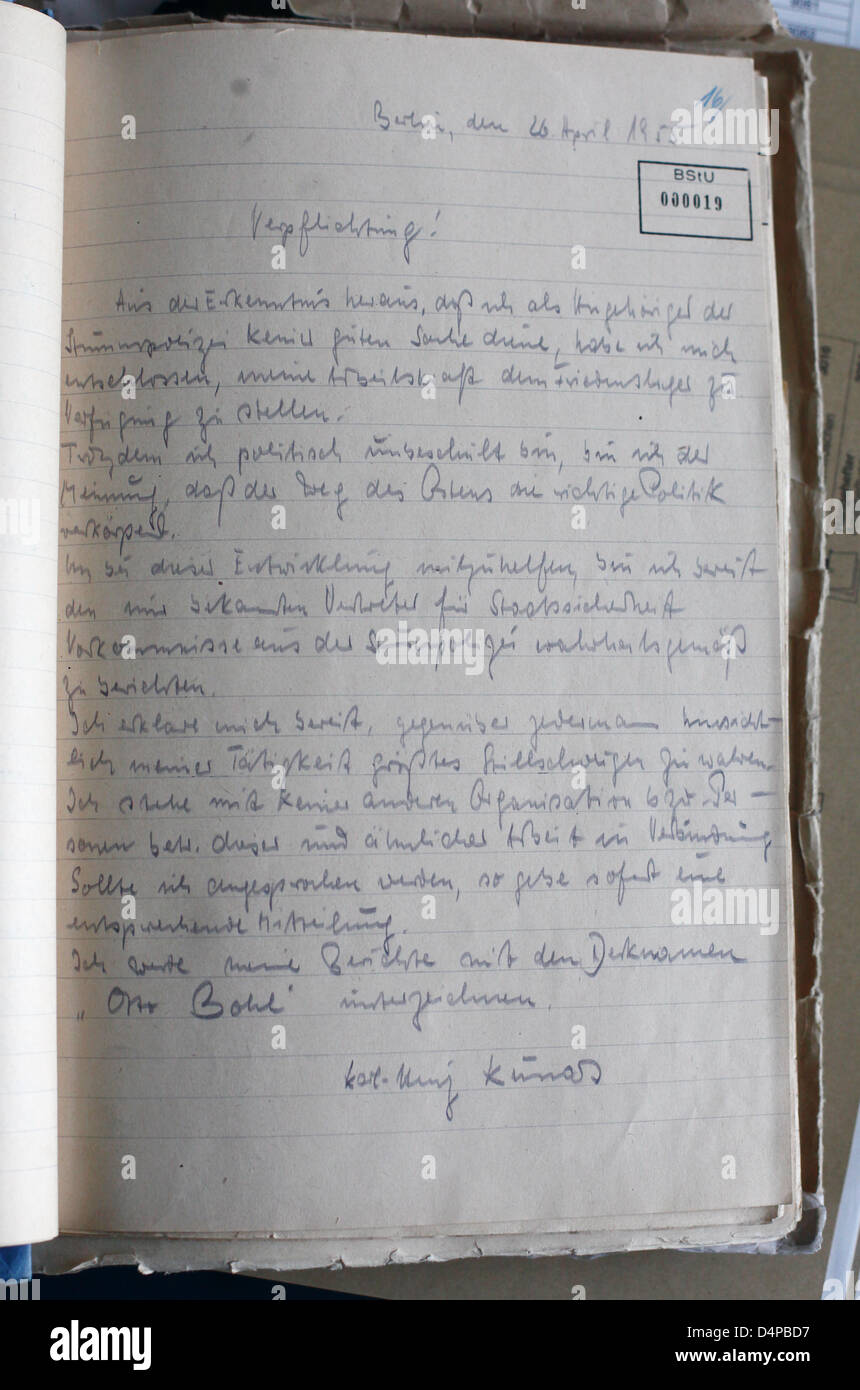 16
Berlin, den 26 April 1955
BStU
000019
Verpflichtung!
Aus der Erkenntnis heraus, daß ich als Angehöriger der
Stummpolizei keiner guten Sache diene, habe ich mich
entschlossen, meine Arbeitskraft dem Friedenslager zu
Verfügung zu stellen.
Trotzdem ich politisch unbeschult bin, bin ich der
Meinung, daß der Weg des Ostens die richtige Politik
verkörpert.
Um bei dieser Entwicklung mitzuhelfen, bin ich bereit
den mir bekannten Vertreter für Staatssicherheit
Vorkommnisse aus der Stummpolizei wahrheitsgemäß
zu berichten.
Ich erkläre mich bereit, gegenüber jedermann hinsicht-
lich meiner Tätigkeit größtes Stillschweigen zu wahren.
Ich stehe mit keiner anderen Organisation bzw. Per-
sonen betr. dieser und ähnlicher Arbeit in Verbindung
Sollte ich angesprochen werden, so gebe sofort eine
entsprechende Mitteilung.
Ich werde meine Berichte mit den Decknamen
„Otto Bohl“ unterzeichnen.
Karl-Heinz Kurras
alamy
Image ID: D4PBD7
www.alamy.com